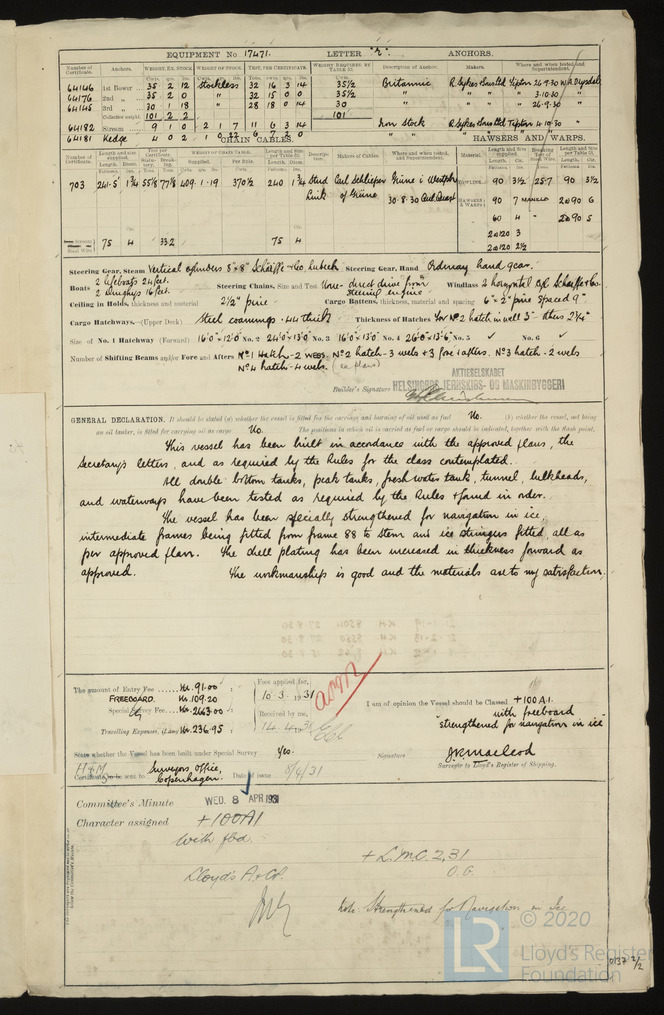 EQUIPMENT No 17471. LETTER "r". ANCHORS.
Number of Certificate. Anchors. WEIGHT EX. STOCK. WEIGHT OF STOCK. TEST, PER CERTIFICATE. WEIGHT REQUIRED BY TABLE 53. Description of Anchor. Makers. Where and when tested and Superintendent.
64146 1st Bower 35 2 12 Stockless 32 16 3 14 35½ Britannic R. Sykes & Sons Ltd Tipton 26.9.30
64176 2nd " 35 2 0 " 32 15 0 0 35½ " " " 3.10.30
64145 3rd " 30 1 18 " 28 18 0 14 30 " " " 26.9.30
Collective weight 101 2 2 101
64182 Stream 9 1 0 2 1 7 11 6 3 14 Iron Stock R. Sykes & Sons Ltd Tipton 4.10.30
64181 Kedge 4 0 2 1 0 22 6 7 2 0
CHAIN CABLES. HAWSERS AND WARPS.
703 241.5 1¾ 55⅛ 77⅛ 409.1.19 370½ 240 1¾ Stud Link Carl Schlieper of Grüne Grüne i Westphn 30.8.30
90 3½ 25.7 90 3½
HAWSERS & WARPS 90 7 MANILLA 2@90 6
60 4 " 2@90 5
2@120 3
2@120 2½
75 4 33.2 75 4
Steering Gear, Steam Vertical cylinders 8" x 8" Schäffe & Co. Lubeck Steering Gear, Hand Ordinary hand gear.
Boats 2 lifeboats 24 feet. 2 Dinghys 16 feet. Steering Chains, Size and Test None - direct drive from steering engine Windlass 2 horizontal
Ceiling in Holds, thickness and material 2½" pine Cargo Battens, thickness, material and spacing 6" x 2" pine spaced 9"
Cargo Hatchways.—(Upper Deck) Steel coamings .44 thick Thickness of Hatches for No 2 hatch in well 3" others 2¾"
Size of No. 1 Hatchway (Forward) 16'0" x 12'0" No. 2 24'0" x 13'0" No. 3 16'0" x 13'0" No. 4 26'0" x 13'6" No. 5 ✓ No. 6 ✓
Number of Shifting Beams and/or Fore and Afters No 1 Hatch - 2 webs. No 2 hatch - 3 webs + 3 fore & afters. No 3 hatch - 2 webs
No 4 hatch - 4 webs. (as plans)
AKTIESELSKABET
Builder's Signature HELSINGØRS JERNSKIBS- OG MASKINBYGGERI
GENERAL DECLARATION. It should be stated (a) whether the vessel is fitted for the carriage and burning of oil used as fuel No. (b) whether the vessel, not being
an oil tanker, is fitted for carrying oil as cargo No. The positions in which oil is carried as fuel or cargo should be indicated, together with the flash point.
This vessel has been built in accordance with the approved plans, the
Secretary's letters, and as required by the Rules for the class contemplated.
All double bottom tanks, peak tanks, fresh water tank, tunnel, bulkheads,
and waterways have been tested as required by the Rules & found in order.
The vessel has been specially strengthened for navigation in ice,
intermediate frames being fitted from frame 88 to stem and ice stringers fitted, all as
per approved plan. The shell plating has been increased in thickness forward as
approved. The workmanship is good and the materials are to my satisfaction.
The amount of Entry Fee ...... Kr. 91.00 : Fees applied for, 10.3.1931
FREEBOARD. Kr. 109.20
Special Survey Fee... Kr. 2663.00 : Received by me,
Travelling Expenses, if any Kr. 236.95 : 14.4.31
I am of opinion the Vessel should be Classed +100A1.
with freeboard
"strengthened for navigation in ice"
State whether the Vessel has been built under Special Survey Yes. Signature J.K. Macleod
Surveyor to Lloyd's Register of Shipping.
Certificate to be sent to Surveyors Office, Copenhagen. Date of issue 8/4/31
Committee's Minute WED. 8 APR 1931
Character assigned +100A1
with fbd.
+ L.M.C. 2,31
O.G.
Lloyd's A & CP.
Note: Strengthened for Navigation in Ice
LR © 2020
Lloyd's Register
Foundation
0137 2/2